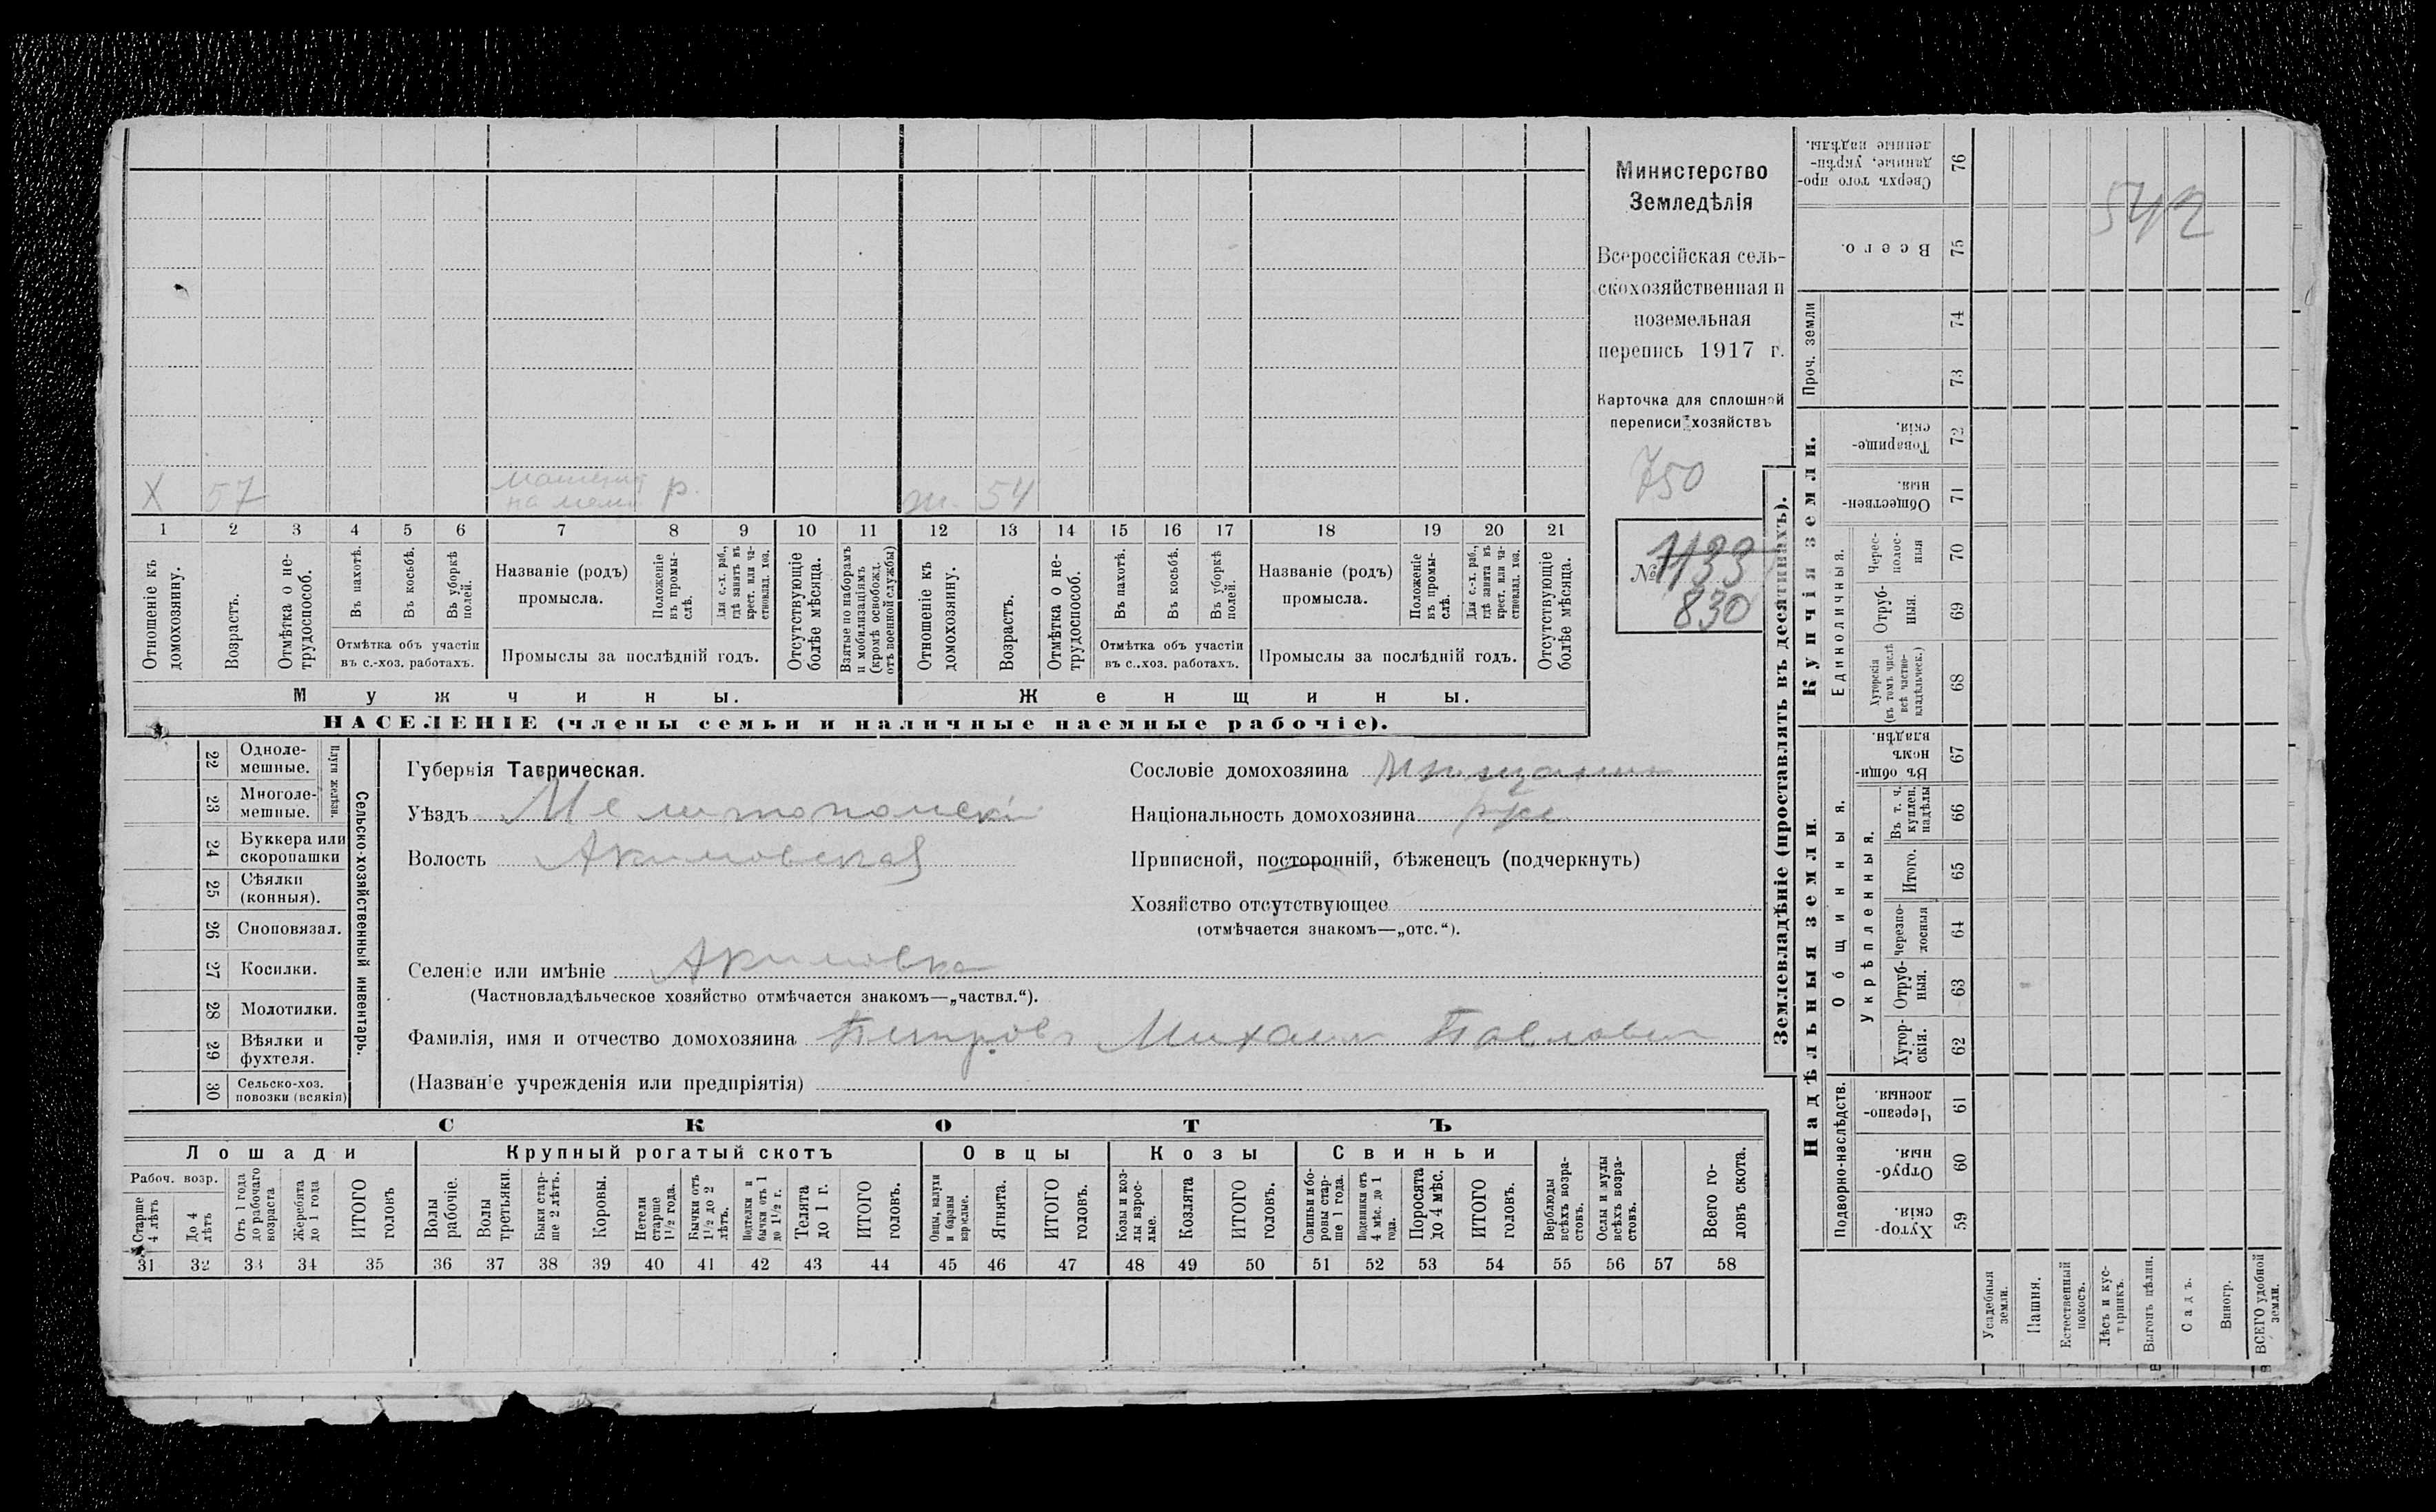 Х 57 машинист р. ж. 54
на мельн.
1 2 3 4 5 6 7 8 9 10 11 12 13 14 15 16 17 18 19 20 21
Отношеніе къ домохозяину.
Возрастъ.
Отмѣтка о не-трудоспособ.
Въ пахотѣ.
Въ косьбѣ.
Въ уборкѣ полей.
Отмѣтка объ участіи
въ с.-хоз. работахъ.
Названіе (родъ)
промысла.
Положеніе въ промы-слѣ.
Для с.-х. раб., гдѣ занятъ въ крест. или ча-стновлад. хоз.
Промыслы за послѣдній годъ.
Отсутствующіе болѣе мѣсяца.
Взятые по наборамъ и мобилизаціямъ (кромѣ освобожд. отъ военной службы)
Отношеніе къ домохозяину.
Возрастъ.
Отмѣтка о не-трудоспособ.
Въ пахотѣ.
Въ косьбѣ.
Въ уборкѣ полей.
Отмѣтка объ участіи
въ с..хоз. работахъ.
Названіе (родъ)
промысла.
Положеніе въ промы-слѣ.
Для с.-х. раб., гдѣ занята въ крест. или ча-стновлад. хоз.
Промыслы за послѣдній годъ.
Отсутствующіе болѣе мѣсяца.
Мужчины.
Женщины.
НАСЕЛЕНІЕ (члены семьи и наличные наемные рабочіе).
Министерство
Земледѣлія
Всероссійская сель-
скохозяйственная и
поземельная
перепись 1917 г.
Карточка для сплошной
переписи хозяйствъ
750
№ 1133
830
22 Одноле-мешные.
23 Многоле-мешные.
Плуги желѣзн.
24 Буккера или скоропашки
25 Сѣялки (конныя).
26 Сноповязал.
27 Косилки.
28 Молотилки.
29 Вѣялки и фухтеля.
30 Сельско-хоз. повозки (всякія)
Сельско-хозяйственный инвентарь.
Губернія Таврическая.
Уѣздъ Мелитопольскій
Волость Акимовская
Селеніе или имѣніе Акимовка
(Частновладѣльческое хозяйство отмѣчается знакомъ—„частвл.“).
Фамилія, имя и отчество домохозяина Петровъ Михаил Павлович
(Названіе учрежденія или предпріятія)
Сословіе домохозяина мѣщанин
Національность домохозяина рус.
Приписной, посторонній, бѣженецъ (подчеркнуть)
Хозяйство отсутствующее
(отмѣчается знакомъ—„отс.“).
СКОТЪ
Лошади
Рабоч. возр.
Старше 4 лѣтъ
До 4 лѣтъ
Отъ 1 года до рабочаго возраста
Жеребята до 1 года
ИТОГО головъ
Крупный рогатый скотъ
Волы рабочіе.
Волы третьяки.
Быки стар-ше 2 лѣтъ.
Коровы.
Нетели старше 1½ года.
Бычки отъ 1½ до 2 лѣтъ.
Подтелки и бычки отъ 1 до 1½ г.
Телята до 1 г.
ИТОГО головъ.
Овцы
Овцы, валухи и бараны взрослые.
Ягнята.
ИТОГО головъ.
Козы
Козы и коз-лы взрос-лые.
Козлята
ИТОГО головъ.
Свиньи
Свиньи и бо-ровы стар-ше 1 года.
Подсвинки отъ 4 мѣс. до 1 года.
Поросята до 4 мѣс.
ИТОГО головъ.
Верблюды всѣхъ возра-стовъ.
Ослы и мулы всѣхъ возра-стовъ.
Всего го-ловъ скота.
31 32 33 34 35 36 37 38 39 40 41 42 43 44 45 46 47 48 49 50 51 52 53 54 55 56 57 58
Землевладѣніе (проставлять въ десятинахъ).
Купчія земли.
Надѣльныя земли.
Сверхъ того про-данные, укрѣп-ленные надѣлы. 76
Всего. 75
Проч. земли 74 73
Товарище-скія. 72
Обществен-ныя. 71
Единоличныя.
Черес-полос-ныя 70
Отруб-ныя. 69
Хуторскія (въ томъ числѣ всѣ частно-владѣльческ.) 68
Общинныя.
Въ общи-номъ владѣн. 67
Укрѣпленныя.
Въ т. ч. куплен. надѣлы 66
Итого. 65
Черезпо-лосныя 64
Отруб-ныя. 63
Хутор-скія. 62
Подворно-наслѣдств.
Черезпо-лосныя. 61
Отруб-ныя. 60
Хутор-скія. 59
542
Усадебныя земли.
Пашня.
Естественный покосъ.
Лѣсъ и кус-тарникъ.
Выгонъ цѣлин.
Садъ.
Виногр.
ВСЕГО удобной земли.